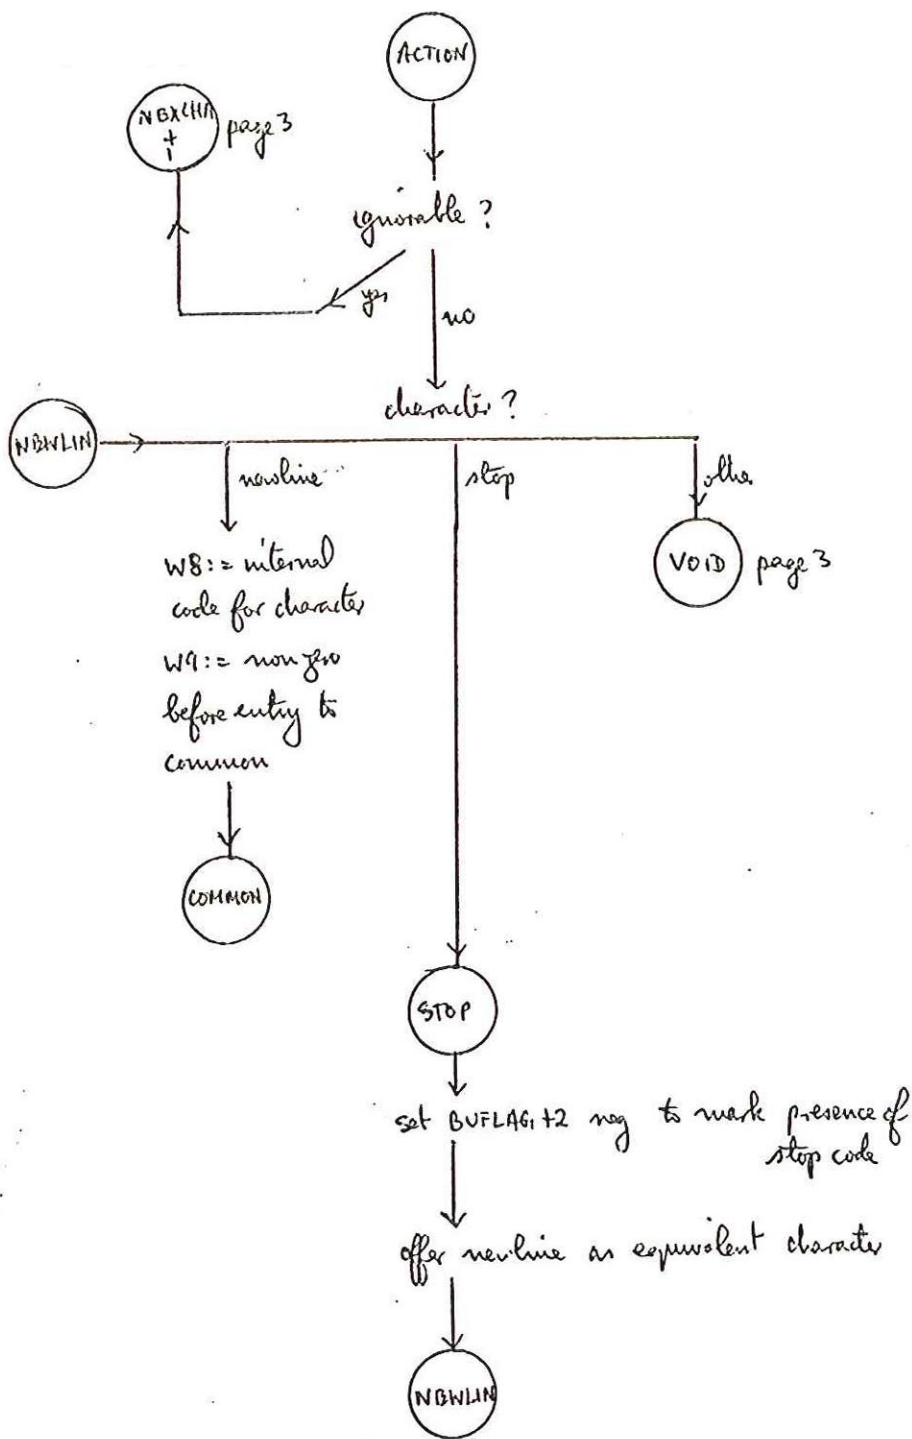 ACTION
NEXCHR
+
1
page 3
ignorable ?
yes
no
character ?
NEWLIN
newline
stop
other
W8:= internal
code for character
W9:= non zero
before entry to
common
VOID
page 3
COMMON
STOP
set BUFLAG+2 neg to mark presence of
stop code
offer newline as equivalent character
NEWLIN